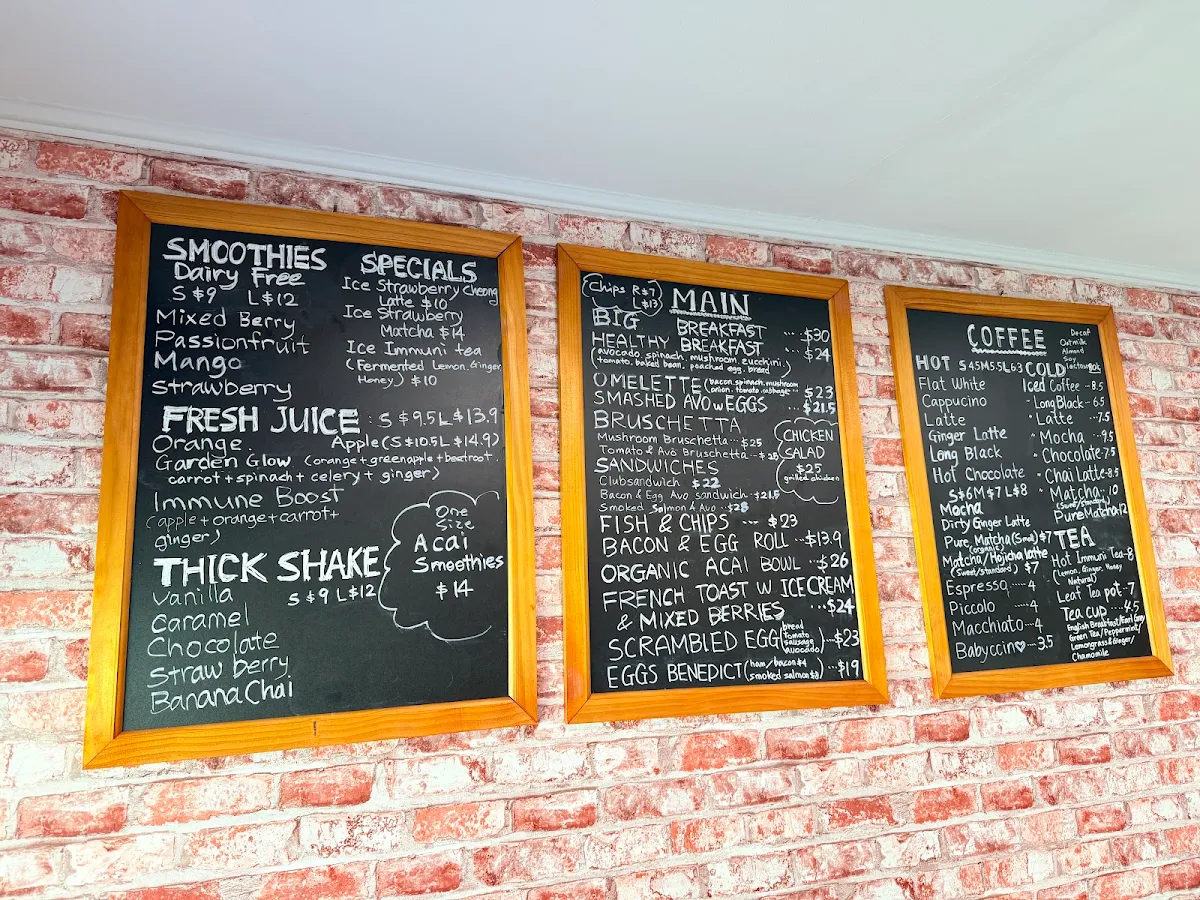 SMOOTHIES
Dairy Free
S $9 L$12
Mixed Berry
Passionfruit
Mango
Strawberry
SPECIALS
Ice Strawberry Cheong
Latte $10
Ice Strawberry
Matcha $14
Ice Immuni tea
(Fermented Lemon, Ginger
Honey) $10
FRESH JUICE : S $9.5 L $13.9
Orange. Apple (S $10.5 L $14.9)
Garden Glow (orange + greenapple + Beetroot.
carrot + spinach + celery + ginger)
Immune Boost
(apple + orange + carrot +
ginger)
THICK SHAKE
S $9 L $12
Vanilla
Caramel
Chocolate
Strawberry
Banana Chai
One
Size
Acai
Smoothies
$14
Chips R $7
L $13
MAIN
BIG BREAKFAST ... $30
HEALTHY BREAKFAST ... $24
(avocado, spinach, mushroom, zucchini,
tomato, baked bean, poached egg, bread)
OMELETTE (bacon, spinach, mushroom
onion, tomato, cabbage) ... $23
SMASHED AVO w EGGS ... $21.5
BRUSCHETTA
Mushroom Bruschetta ... $25
Tomato & Avo Bruschetta ...
SANDWICHES
Clubsandwich $22
Bacon & Egg Avo sandwich ... $21.5
Smoked Salmon & Avo ...
CHICKEN
SALAD
$25
grilled chicken
FISH & CHIPS ... $23
BACON & EGG ROLL ... $13.9
ORGANIC ACAI BOWL ... $26
FRENCH TOAST W ICECREAM
& MIXED BERRIES ... $24
SCRAMBLED EGG (bread
tomato
sausage
avocado) ... $23
EGGS BENEDICT (ham/bacon $4
smoked salmon $8) ... $19
COFFEE
Decaf
Oatmilk
Almond
Soy
HOT S 4.5 M 5.5 L 6.3
Flat White
Cappucino
Latte
Ginger Latte
Long Black
Hot Chocolate
S $6 M $7 L $8
Mocha
Dirty Ginger Latte
Pure Matcha (Small) $7
(organic)
Matcha/Hojicha latte
(Sweet/standard) $7
Espresso ... 4
Piccolo ... 4
Macchiato ... 4
Babyccino ♡ ... 3.5
COLD
Iced Coffee - 8.5
" Long Black - 6.5
" Latte ... 7.5
" Mocha ... 9.5
" Chocolate 7.5
" Chai Latte - 8.5
" Matcha - 10
(Sweet/standard)
Pure Matcha 12
TEA
Hot Immuni Tea - 8
(Lemon, Ginger, Honey
Natural)
Leaf Tea pot - 7
Tea cup ... 4.5
English Breakfast/Earl Grey
Green Tea/Peppermint/
Lemongrass & Ginger/
Chamomile